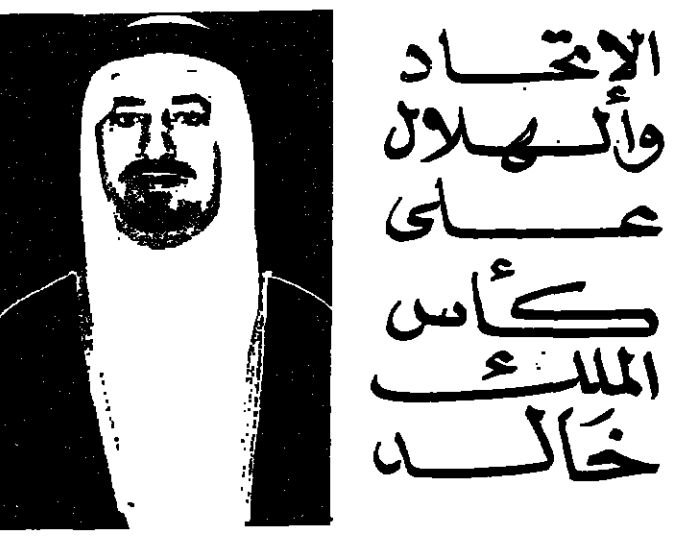 الإتحاد
وألهلال
على
كأس
الملك
خَالد